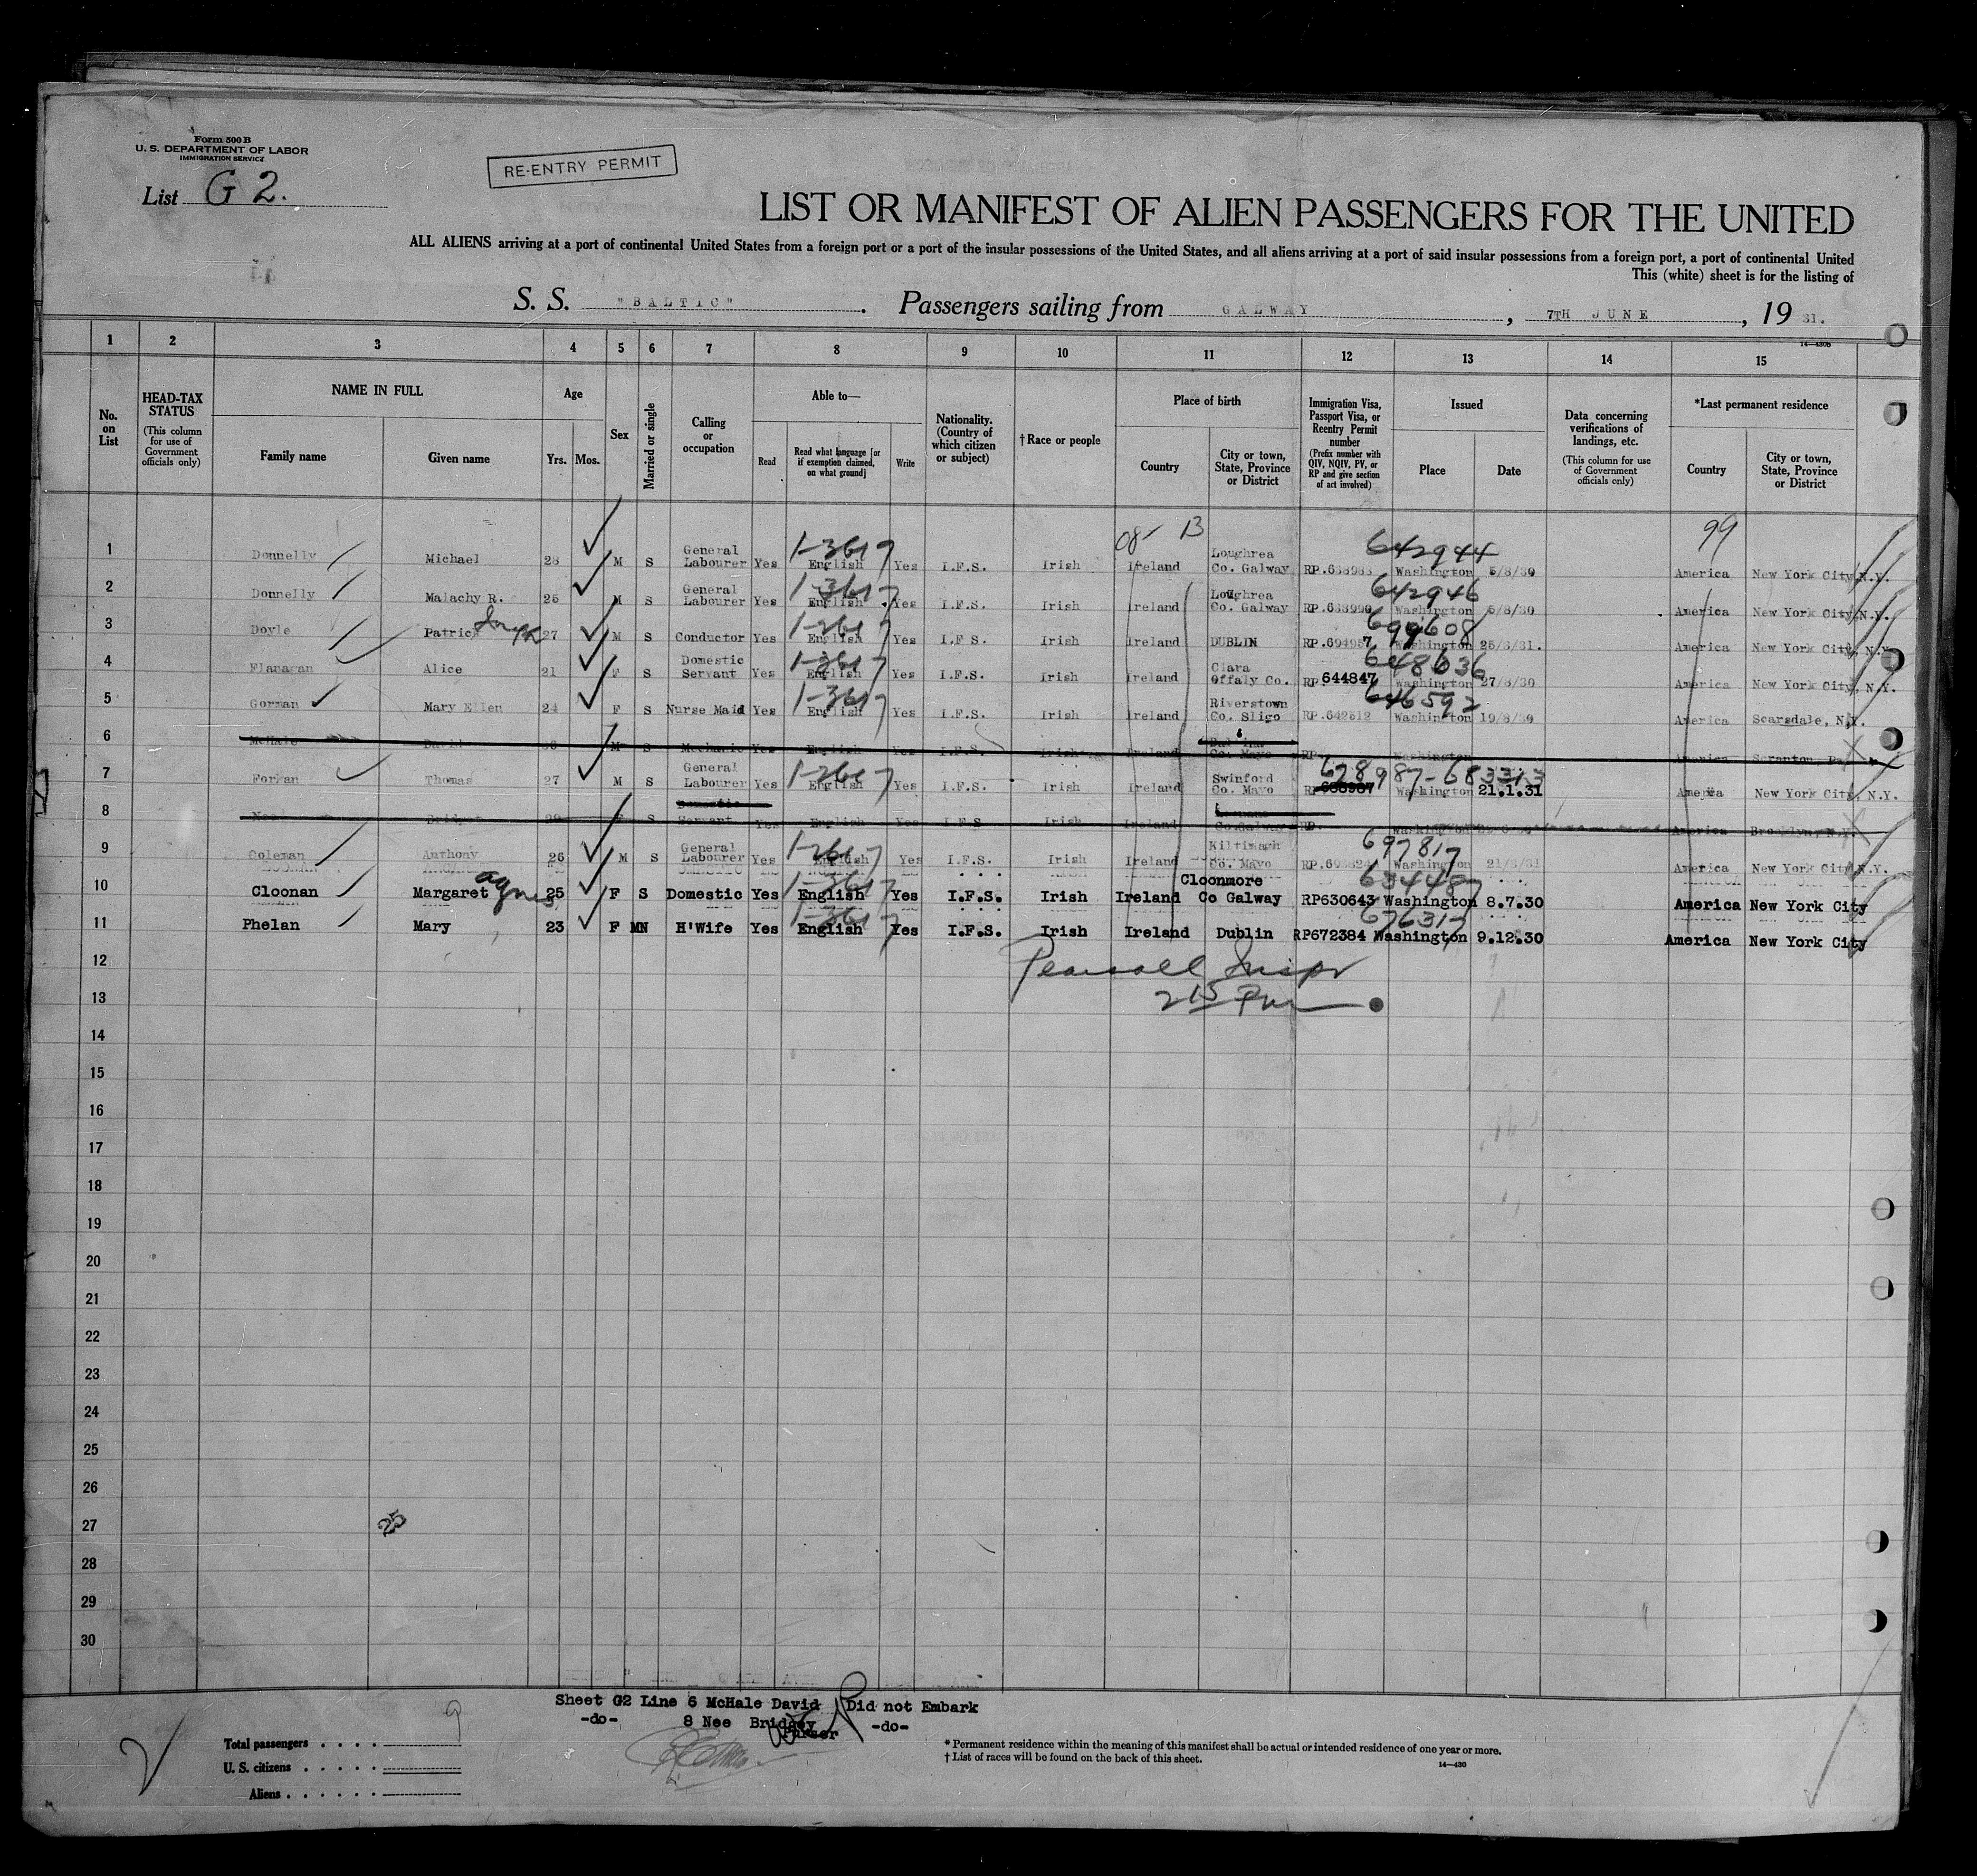 Form 500 B
U. S. DEPARTMENT OF LABOR
IMMIGRATION SERVICE
List G 2.
RE-ENTRY PERMIT
LIST OR MANIFEST OF ALIEN PASSENGERS FOR THE UNITED
ALL ALIENS arriving at a port of continental United States from a foreign port or a port of the insular possessions of the United States, and all aliens arriving at a port of said insular possessions from a foreign port, a port of continental United
This (white) sheet is for the listing of
S. S. "BALTIC". Passengers sailing from GALWAY, 7TH JUNE, 19 31.
14—430b
1 2 3 4 5 6 7 8 9 10 11 12 13 14 15
No. on List
HEAD-TAX STATUS (This column for use of Government officials only)
NAME IN FULL
Family name
Given name
Age
Yrs. Mos.
Sex
Married or single
Calling or occupation
Able to—
Read
Read what language [or if exemption claimed, on what ground]
Write
Nationality. (Country of which citizen or subject)
†Race or people
Place of birth
Country
City or town, State, Province or District
Immigration Visa, Passport Visa, or Reentry Permit number (Prefix number with QIV, NQIV, PV, or RP and give section of act involved)
Issued
Place
Date
Data concerning verifications of landings, etc. (This column for use of Government officials only)
*Last permanent residence
Country
City or town, State, Province or District
08- B 99
1 Donnelly Michael 28 M S General Labourer Yes 1-3617 English Yes I.F.S. Irish Ireland Loughrea Co. Galway 642944 Washington 5/8/30 America New York City, N.Y.
2 Donnelly Malachy R. 25 M S General Labourer Yes 1-3617 English Yes I.F.S. Irish Ireland Loughrea Co. Galway 642946 Washington 5/8/30 America New York City, N.Y.
3 Doyle Patrick Joseph 27 M S Conductor Yes 1-2617 English Yes I.F.S. Irish Ireland DUBLIN 699608 Washington America New York City, N.Y.
4 Flanagan Alice 21 F S Domestic Servant Yes 1-3617 English Yes I.F.S. Irish Ireland Clara Offaly Co. RP.644847 648636 Washington 27/8/30 America New York City, N.Y.
5 Gorman Mary Ellen 24 F S Nurse Maid Yes 1-3617 English Yes I.F.S. Irish Ireland Riverstown Co. Sligo RP.642512 646592 Washington 19/8/30 America Scarsdale, N.Y.
6 McHale David M S Mechanic Yes English Yes I.F.S. Irish Ireland Co. Mayo RP. Washington America Scranton Pa.
7 Forkan Thomas 27 M S General Labourer Yes 1-2617 English Yes I.F.S. Irish Ireland Swinford Co. Mayo 628987-683313 Washington 21.1.31 America New York City, N.Y.
8 Nee Bridget S Domestic Servant Yes English Yes I.F.S. Irish Ireland Co. Galway RP. Washington America Brooklyn, N.Y.
9 Coleman Anthony 26 M S General Labourer Yes 1-2617 English Yes I.F.S. Irish Ireland Kiltimagh Co. Mayo 697817 Washington America New York City N.Y.
10 Cloonan Margaret Agnes 25 F S Domestic Yes 1-3617 English Yes I.F.S. Irish Ireland Cloonmore Co Galway RP630643 634487 Washington 8.7.30 America New York City
11 Phelan Mary 23 F M H'Wife Yes 1-3617 English Yes I.F.S. Irish Ireland Dublin RP672384 676317 Washington 9.12.30 America New York City
12 Pearsall Inspr
13 215 Pm
14
15
16
17
18
19
20
21
22
23
24
25
26
27 25
28
29
30
Sheet G2 Line 6 McHale David Did not Embark
-do- 8 Nee Bridget -do-
Purser
Total passengers . . . . 9
U. S. citizens . . . . .
Aliens . . . . . .
* Permanent residence within the meaning of this manifest shall be actual or intended residence of one year or more.
† List of races will be found on the back of this sheet.
14—430